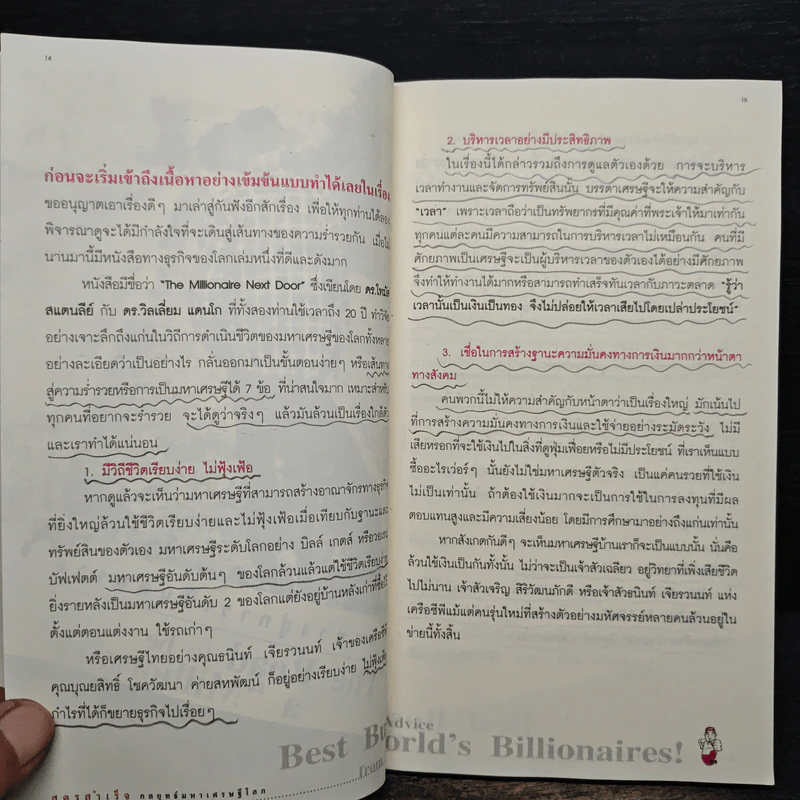 14
ก่อนจะเริ่มเข้าถึงเนื้อหาอย่างเข้มข้นแบบทำได้เลยในเรื่อง
ขออนุญาตเอาเรื่องดีๆ มาเล่าสู่กันฟังอีกสักเรื่อง เพื่อให้ทุกท่านได้ลอง
พิจารณาดูจะได้มีกำลังใจที่จะเดินสู่เส้นทางของความร่ำรวยกัน เมื่อไม่
นานมานี้มีหนังสือทางธุรกิจของโลกเล่มหนึ่งที่ดีและดังมาก
หนังสือมีชื่อว่า "The Millionaire Next Door" ซึ่งเขียนโดย ดร.โทมัส
สแตนลีย์ กับ ดร.วิลเลี่ยม แดนโก ที่ทั้งสองท่านใช้เวลาถึง 20 ปี ทำวิจัย
อย่างเจาะลึกถึงแก่นในวิถีการดำเนินชีวิตของมหาเศรษฐีของโลกทั้งหลาย
อย่างละเอียดว่าเป็นอย่างไร กลั่นออกมาเป็นขั้นตอนง่ายๆ หรือเส้นทาง
สู่ความร่ำรวยหรือการเป็นมหาเศรษฐีได้ 7 ข้อ ที่น่าสนใจมาก เหมาะสำหรับ
ทุกคนที่อยากจะร่ำรวย จะได้ดูว่าจริงๆ แล้วมันล้วนเป็นเรื่องใกล้ตัว
และเราทำได้แน่นอน
1. มีวิถีชีวิตเรียบง่าย ไม่ฟุ้งเฟ้อ
หากดูแล้วจะเห็นว่ามหาเศรษฐีที่สามารถสร้างอาณาจักรทางธุรกิจ
ที่ยิ่งใหญ่ล้วนใช้ชีวิตเรียบง่ายและไม่ฟุ้งเฟ้อเมื่อเทียบกับฐานะและ
ทรัพย์สินของตัวเอง มหาเศรษฐีระดับโลกอย่าง บิลล์ เกตส์ หรือวอเรน
บัฟเฟตต์ มหาเศรษฐีอันดับต้นๆ ของโลกล้วนแล้วแต่ใช้ชีวิตเรียบง่าย
ยิ่งรายหลังเป็นมหาเศรษฐีอันดับ 2 ของโลกแต่ยังอยู่บ้านหลังเก่าที่ซื้อไว้
ตั้งแต่ตอนแต่งงาน ใช้รถเก่าๆ
หรือเศรษฐีไทยอย่างคุณธนินท์ เจียรวนนท์ เจ้าของเครือซีพี
คุณบุณยสิทธิ์ โชควัฒนา ค่ายสหพัฒน์ ก็อยู่อย่างเรียบง่าย ไม่ฟุ้งเฟ้อ
กำไรที่ได้ก็ขยายธุรกิจไปเรื่อยๆ
สูตรสำเร็จ กลยุทธ์มหาเศรษฐีโลก
15
2. บริหารเวลาอย่างมีประสิทธิภาพ
ในเรื่องนี้ได้กล่าวรวมถึงการดูแลตัวเองด้วย การจะบริหาร
เวลาทำงานและจัดการทรัพย์สินนั้น บรรดาเศรษฐีจะให้ความสำคัญกับ
"เวลา" เพราะเวลาถือว่าเป็นทรัพยากรที่มีคุณค่าที่พระเจ้าให้มาเท่ากัน
ทุกคนแต่ละคนมีความสามารถในการบริหารเวลาไม่เหมือนกัน คนที่มี
ศักยภาพเป็นเศรษฐีจะเป็นผู้บริหารเวลาของตัวเองได้อย่างมีศักยภาพ
จึงทำให้ทำงานได้มากหรือสามารถทำเสร็จทันเวลากับภาวะตลาด "รู้ว่า
เวลานั้นเป็นเงินเป็นทอง จึงไม่ปล่อยให้เวลาเสียไปโดยเปล่าประโยชน์"
3. เชื่อในการสร้างฐานะความมั่นคงทางการเงินมากกว่าหน้าตา
ทางสังคม
คนพวกนี้ไม่ให้ความสำคัญกับหน้าตาว่าเป็นเรื่องใหญ่ มักเน้นไป
ที่การสร้างความมั่นคงทางการเงินและใช้จ่ายอย่างระมัดระวัง ไม่มี
เสียหรอกที่จะใช้เงินไปในสิ่งที่ดูฟุ่มเฟือยหรือไม่มีประโยชน์ ที่เราเห็นแบบ
ซื้ออะไรเว่อร์ๆ นั้นยังไม่ใช่มหาเศรษฐีตัวจริง เป็นแค่คนรวยที่ใช้เงิน
ไม่เป็นเท่านั้น ถ้าต้องใช้เงินมากจะเป็นการใช้ในการลงทุนที่มีผล
ตอบแทนสูงและมีความเสี่ยงน้อย โดยมีการศึกษามาอย่างถึงแก่นเท่านั้น
หากสังเกตกันดีๆ จะเห็นมหาเศรษฐีบ้านเราก็จะเป็นแบบนั้น นั่นคือ
ล้วนใช้เงินเป็นกันทั้งนั้น ไม่ว่าจะเป็นเจ้าสัวเฉลียว อยู่วิทยาที่เพิ่งเสียชีวิต
ไปไม่นาน เจ้าสัวเจริญ สิริวัฒนภักดี หรือเจ้าสัวธนินท์ เจียรวนนท์ แห่ง
เครือซีพีแม้แต่คนรุ่นใหม่ที่สร้างตัวอย่างมหัศจรรย์หลายคนล้วนอยู่ใน
ข่ายนี้ทั้งสิ้น
Advice
Best Bu orld's Billionaires!
from